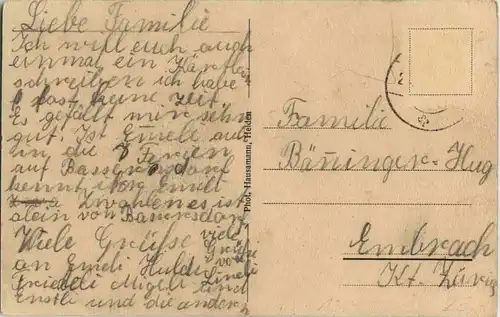 Liebe Familie
Ich will euch auch
einmal ein Kärtlein
schreiben ich habe
fast keine Zeit.
Es gefällt mir sehr
gut. Ist Emeli auch
in die Ferien
auf Bassersdorf
kennt ihr Emeli
Zwahlen es ist
alein von Bassersdorf
Viele Grüsse viele Grüsse
an Emeli Huldi
Friedeli Migeli
Ernstli und die andern
Phot. Haussmann, Heiden
Familie
Bänninger-Hug
Embrach
Kt. Zürich